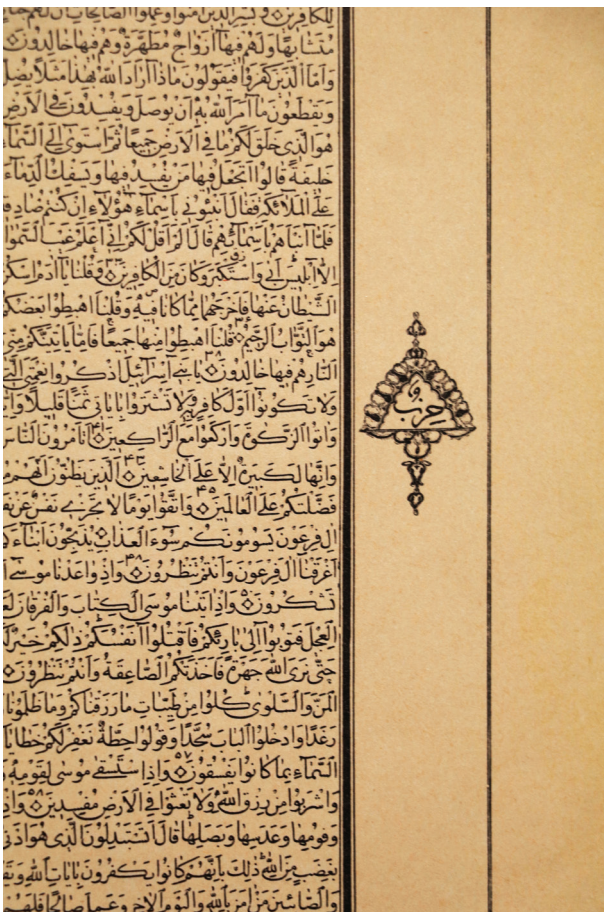 للكافرين وبشر الذين امنوا وعملوا الصالحات ان لهم
متشابها ولهم فيها ازواج مطهرة وهم فيها خالدون
واما الذين كفروا فيقولون ماذا اراد الله بهذا مثلا يضل
ويقطعون ما امر الله به ان يوصل ويفسدون في الارض
هو الذي خلق لكم ما في الارض جميعا ثم استوى الى السماء
خليفة قالوا اتجعل فيها من يفسد فيها ويسفك الدماء
على الملائكة فقال انبئوني باسماء هؤلاء ان كنتم
فلما انباهم باسمائهم قال الم اقل لكم اني اعلم غيب
الا ابليس ابى واستكبر وكان من الكافرين ٣٤ وقلنا يا ادم
الشيطان عنها فاخرجهما مما كانا فيه وقلنا اهبطوا
هو التواب الرحيم ٣٧ قلنا اهبطوا منها جميعا فاما ياتينكم مني
النار هم فيها خالدون ٣٩ يا بني اسرائيل اذكروا نعمتي
ولا تكونوا اول كافر به ولا تشتروا باياتي ثمنا قليلا
واتوا الزكوة واركعوا مع الراكعين ٤٣ اتامرون الناس
وانها لكبيرة الا على الخاشعين ٤٥ الذين يظنون انهم
فضلتكم على العالمين ٤٧ واتقوا يوما لا تجزي نفس عن
ال فرعون يسومونكم سوء العذاب يذبحون ابناءكم
اغرقنا ال فرعون وانتم تنظرون ٥٠ واذ واعدنا موسى
تشكرون واذ اتينا موسى الكتاب والفرقان
العجل فتوبوا الى بارئكم فاقتلوا انفسكم ذلكم خير
حتى نرى الله جهرة فاخذتكم الصاعقة وانتم تنظرون
المن والسلوى كلوا من طيبات ما رزقناكم وما ظلمونا
رغدا وادخلوا الباب سجدا وقولوا حطة نغفر لكم
السماء بما كانوا يفسقون ٥٩ واذ استسقى موسى لقومه
واشربوا من رزق الله ولا تعثوا في الارض مفسدين ٦٠ واذ
وفومها وعدسها وبصلها قال اتستبدلون الذي هو ادنى
بغضب من الله ذلك بانهم كانوا يكفرون بايات الله
والصابئين من امن بالله واليوم الاخر وعمل صالحا فلهم
حزب